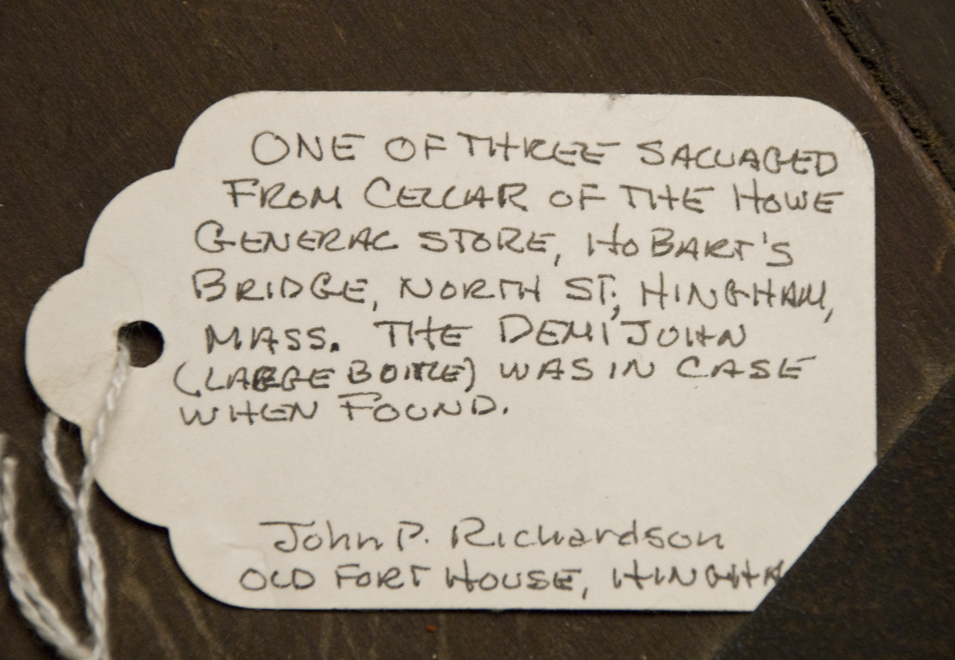 ONE OF THREE SALVAGED
FROM CELLAR OF THE HOWE
GENERAL STORE, HOBART'S
BRIDGE, NORTH ST., HINGHAM,
MASS. THE DEMIJOHN
(LARGE BOTTLE) WAS IN CASE
WHEN FOUND.
John P. Richardson
OLD FORT HOUSE, HINGHA